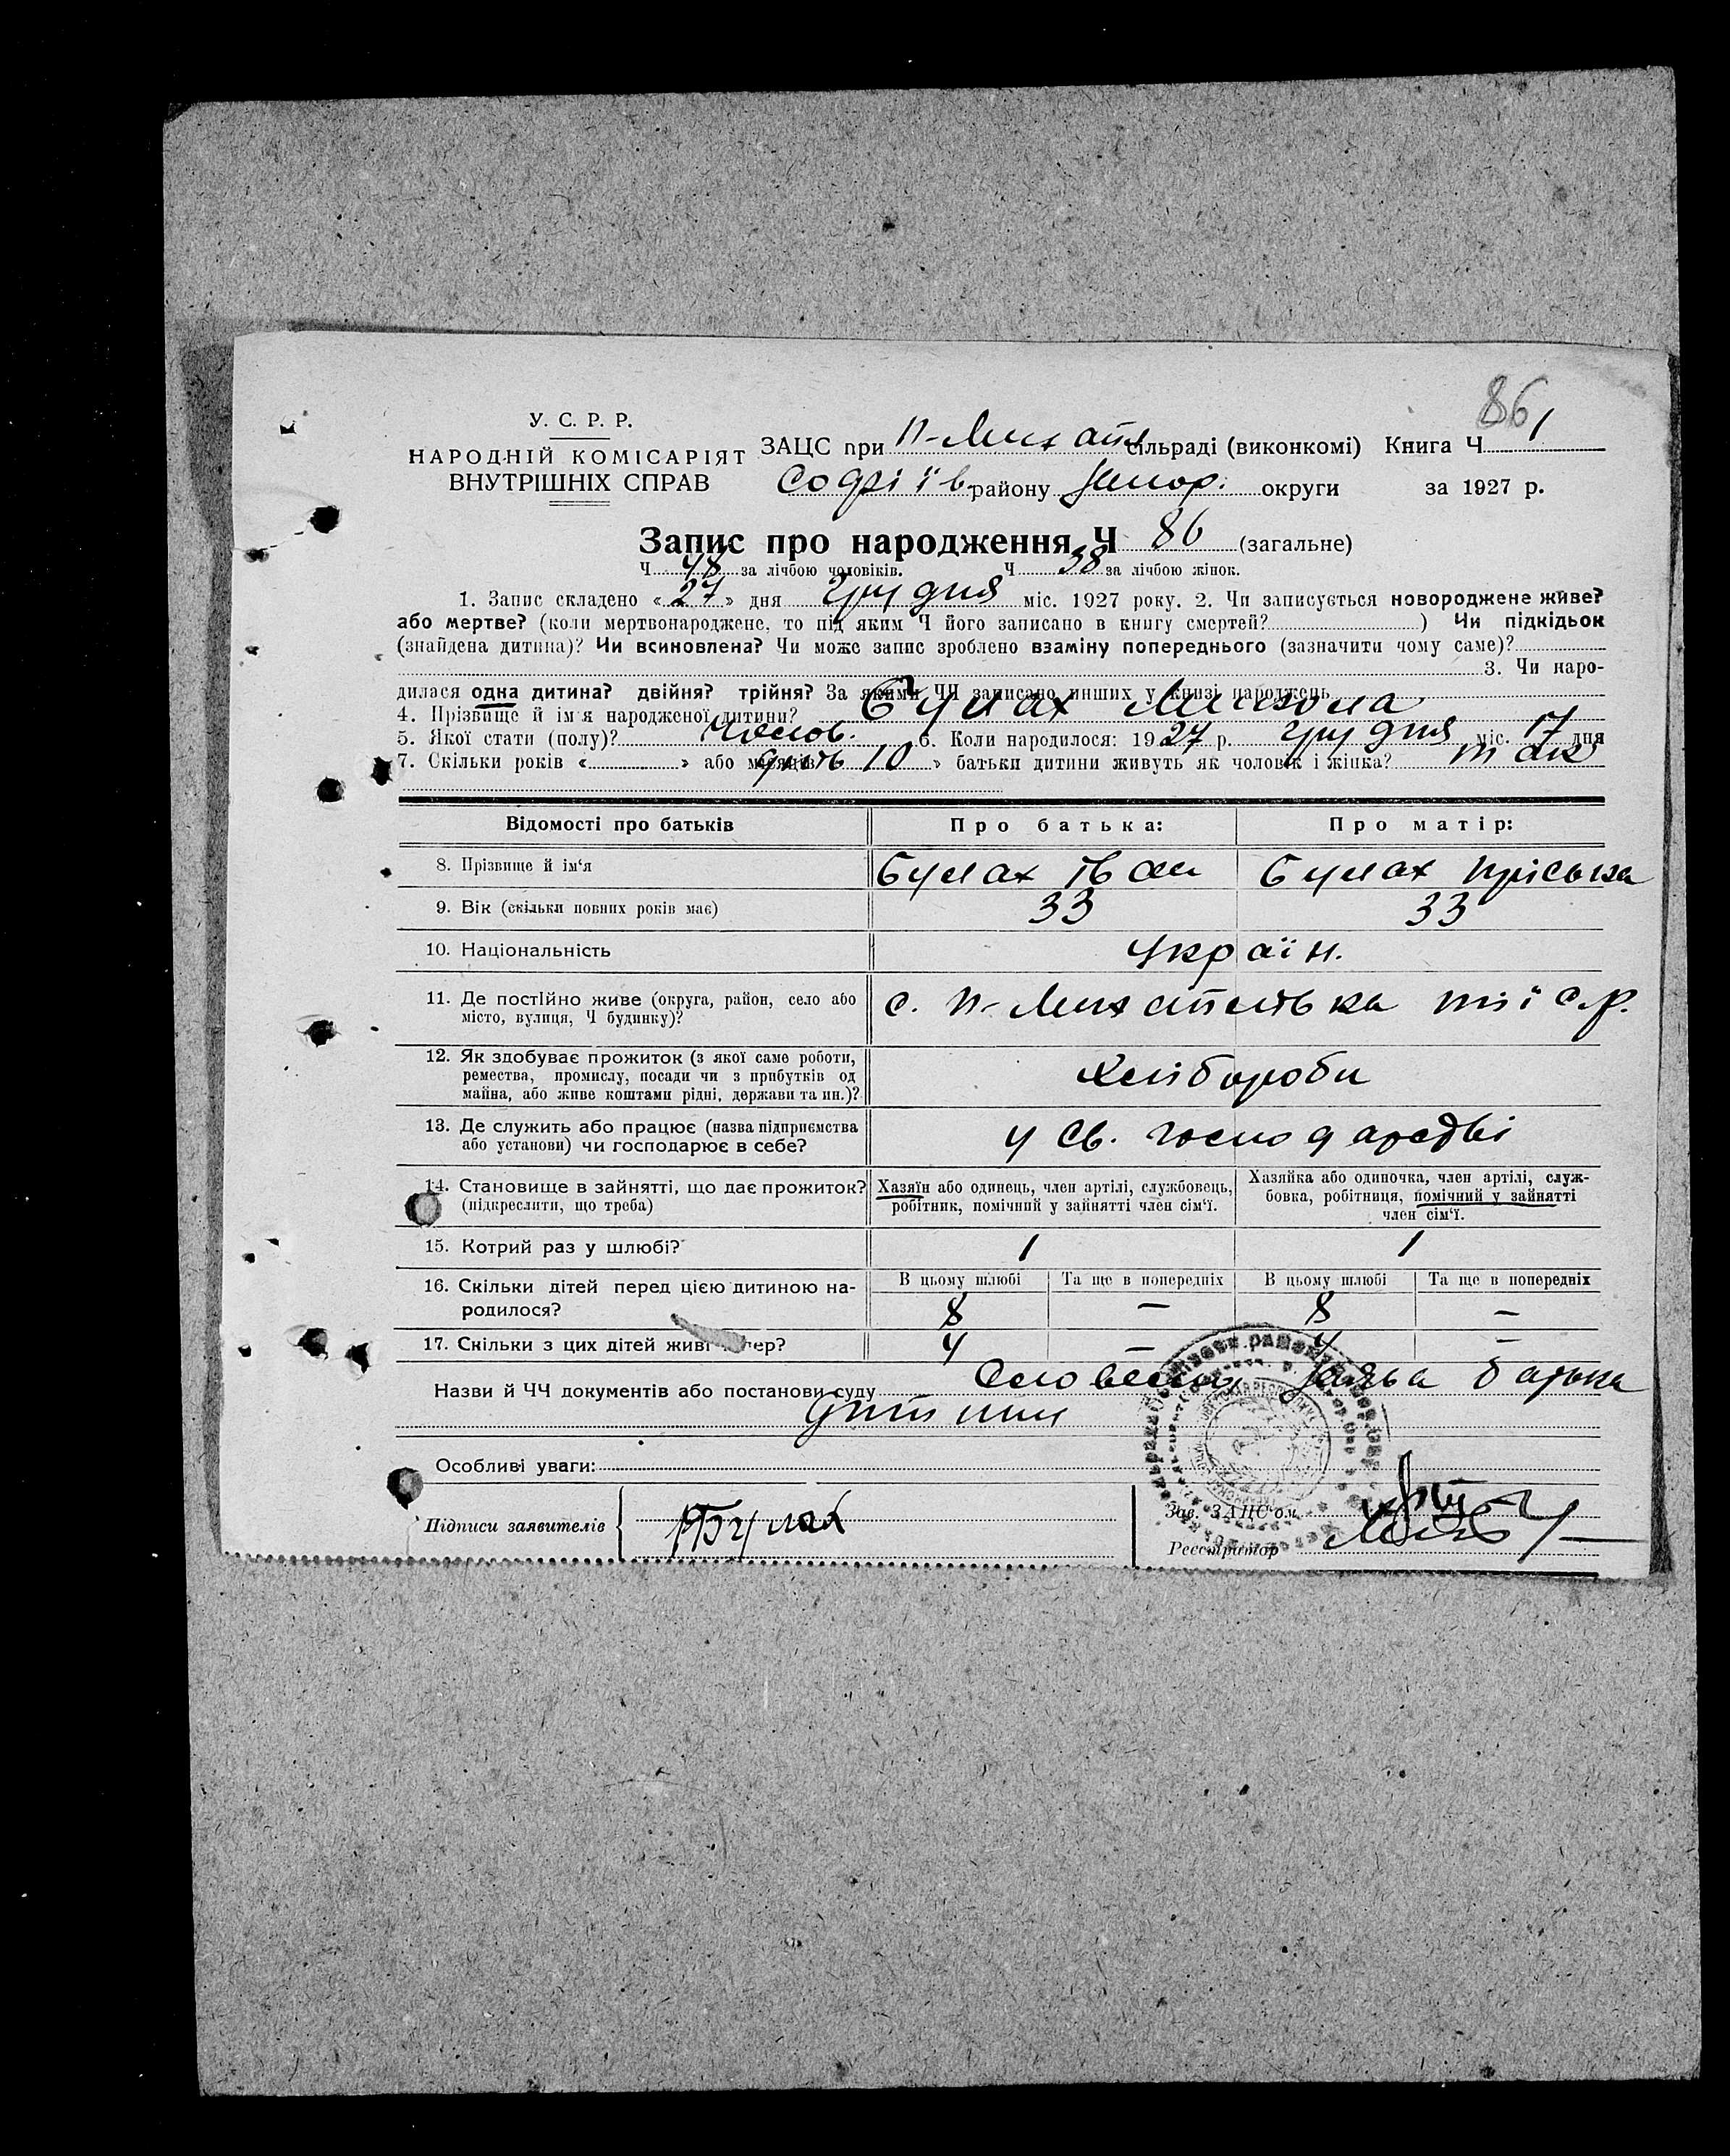 86
У. С. Р. Р.
НАРОДНІЙ КОМІСАРІЯТ
ВНУТРІШНІХ СПРАВ
ЗАЦС при п-Михайл сільраді (виконкомі) Книга Ч 1
Софіїв району Запор. округи за 1927 р.
Запис про народження Ч 86 (загальне)
Ч 48 за лічбою чоловіків. Ч 38 за лічбою жінок.
1. Запис складено «27» дня грудня міс. 1927 року. 2. Чи записується новороджене живе?
або мертве? (коли мертвонароджене, то під яким Ч його записано в книгу смертей? ) Чи підкідьок
(знайдена дитина)? Чи всиновлена? Чи може запис зроблено взаміну попереднього (зазначити чому саме)?
3. Чи наро-
дилася одна дитина? двійня? трійня? За якими ЧЧ записано инших у книзі народжень
4. Прізвище й ім'я народженої дитини? Булах Микола
5. Якої стати (полу)? Чолов. 6. Коли народилося: 1927 р. грудня міс. 17 дня
7. Скільки років « » або місяців 10 » батьки дитини живуть як чоловік і жінка? так
Відомості про батьків Про батька: Про матір:
8. Прізвище й ім'я Булах Іван Булах Пріська
9. Вік (скільки повних років має) 33 33
10. Національність Україн.
11. Де постійно живе (округа, район, село або
місто, вулиця, Ч будинку)? с. п-Михайлівка тії с.р.
12. Як здобуває прожиток (з якої саме роботи,
ремества, промислу, посади чи з прибутків од
майна, або живе коштами рідні, держави та ин.)? Хлібороби
13. Де служить або працює (назва підприємства
або установи) чи господарює в себе? у св. господарстві
14. Становище в зайнятті, що дає прожиток?
(підкреслити, що треба)
Хазяїн або одинець, член артілі, службовець,
робітник, помічний у зайнятті член сім'ї.
Хазяйка або одиночка, член артілі, служ-
бовка, робітниця, помічний у зайнятті
член сім'ї.
15. Котрий раз у шлюбі? 1 1
16. Скільки дітей перед цією дитиною на-
родилося?
В цьому шлюбі Та ще в попередніх В цьому шлюбі Та ще в попередніх
8 — 8 —
17. Скільки з цих дітей живі тепер? 4 — 4 —
Назви й ЧЧ документів або постанови суду Словесна заява батька
дитини
Особливі уваги:
Підписи заявителів Булах
Зав. ЗАЦС'ом
Реєстратор